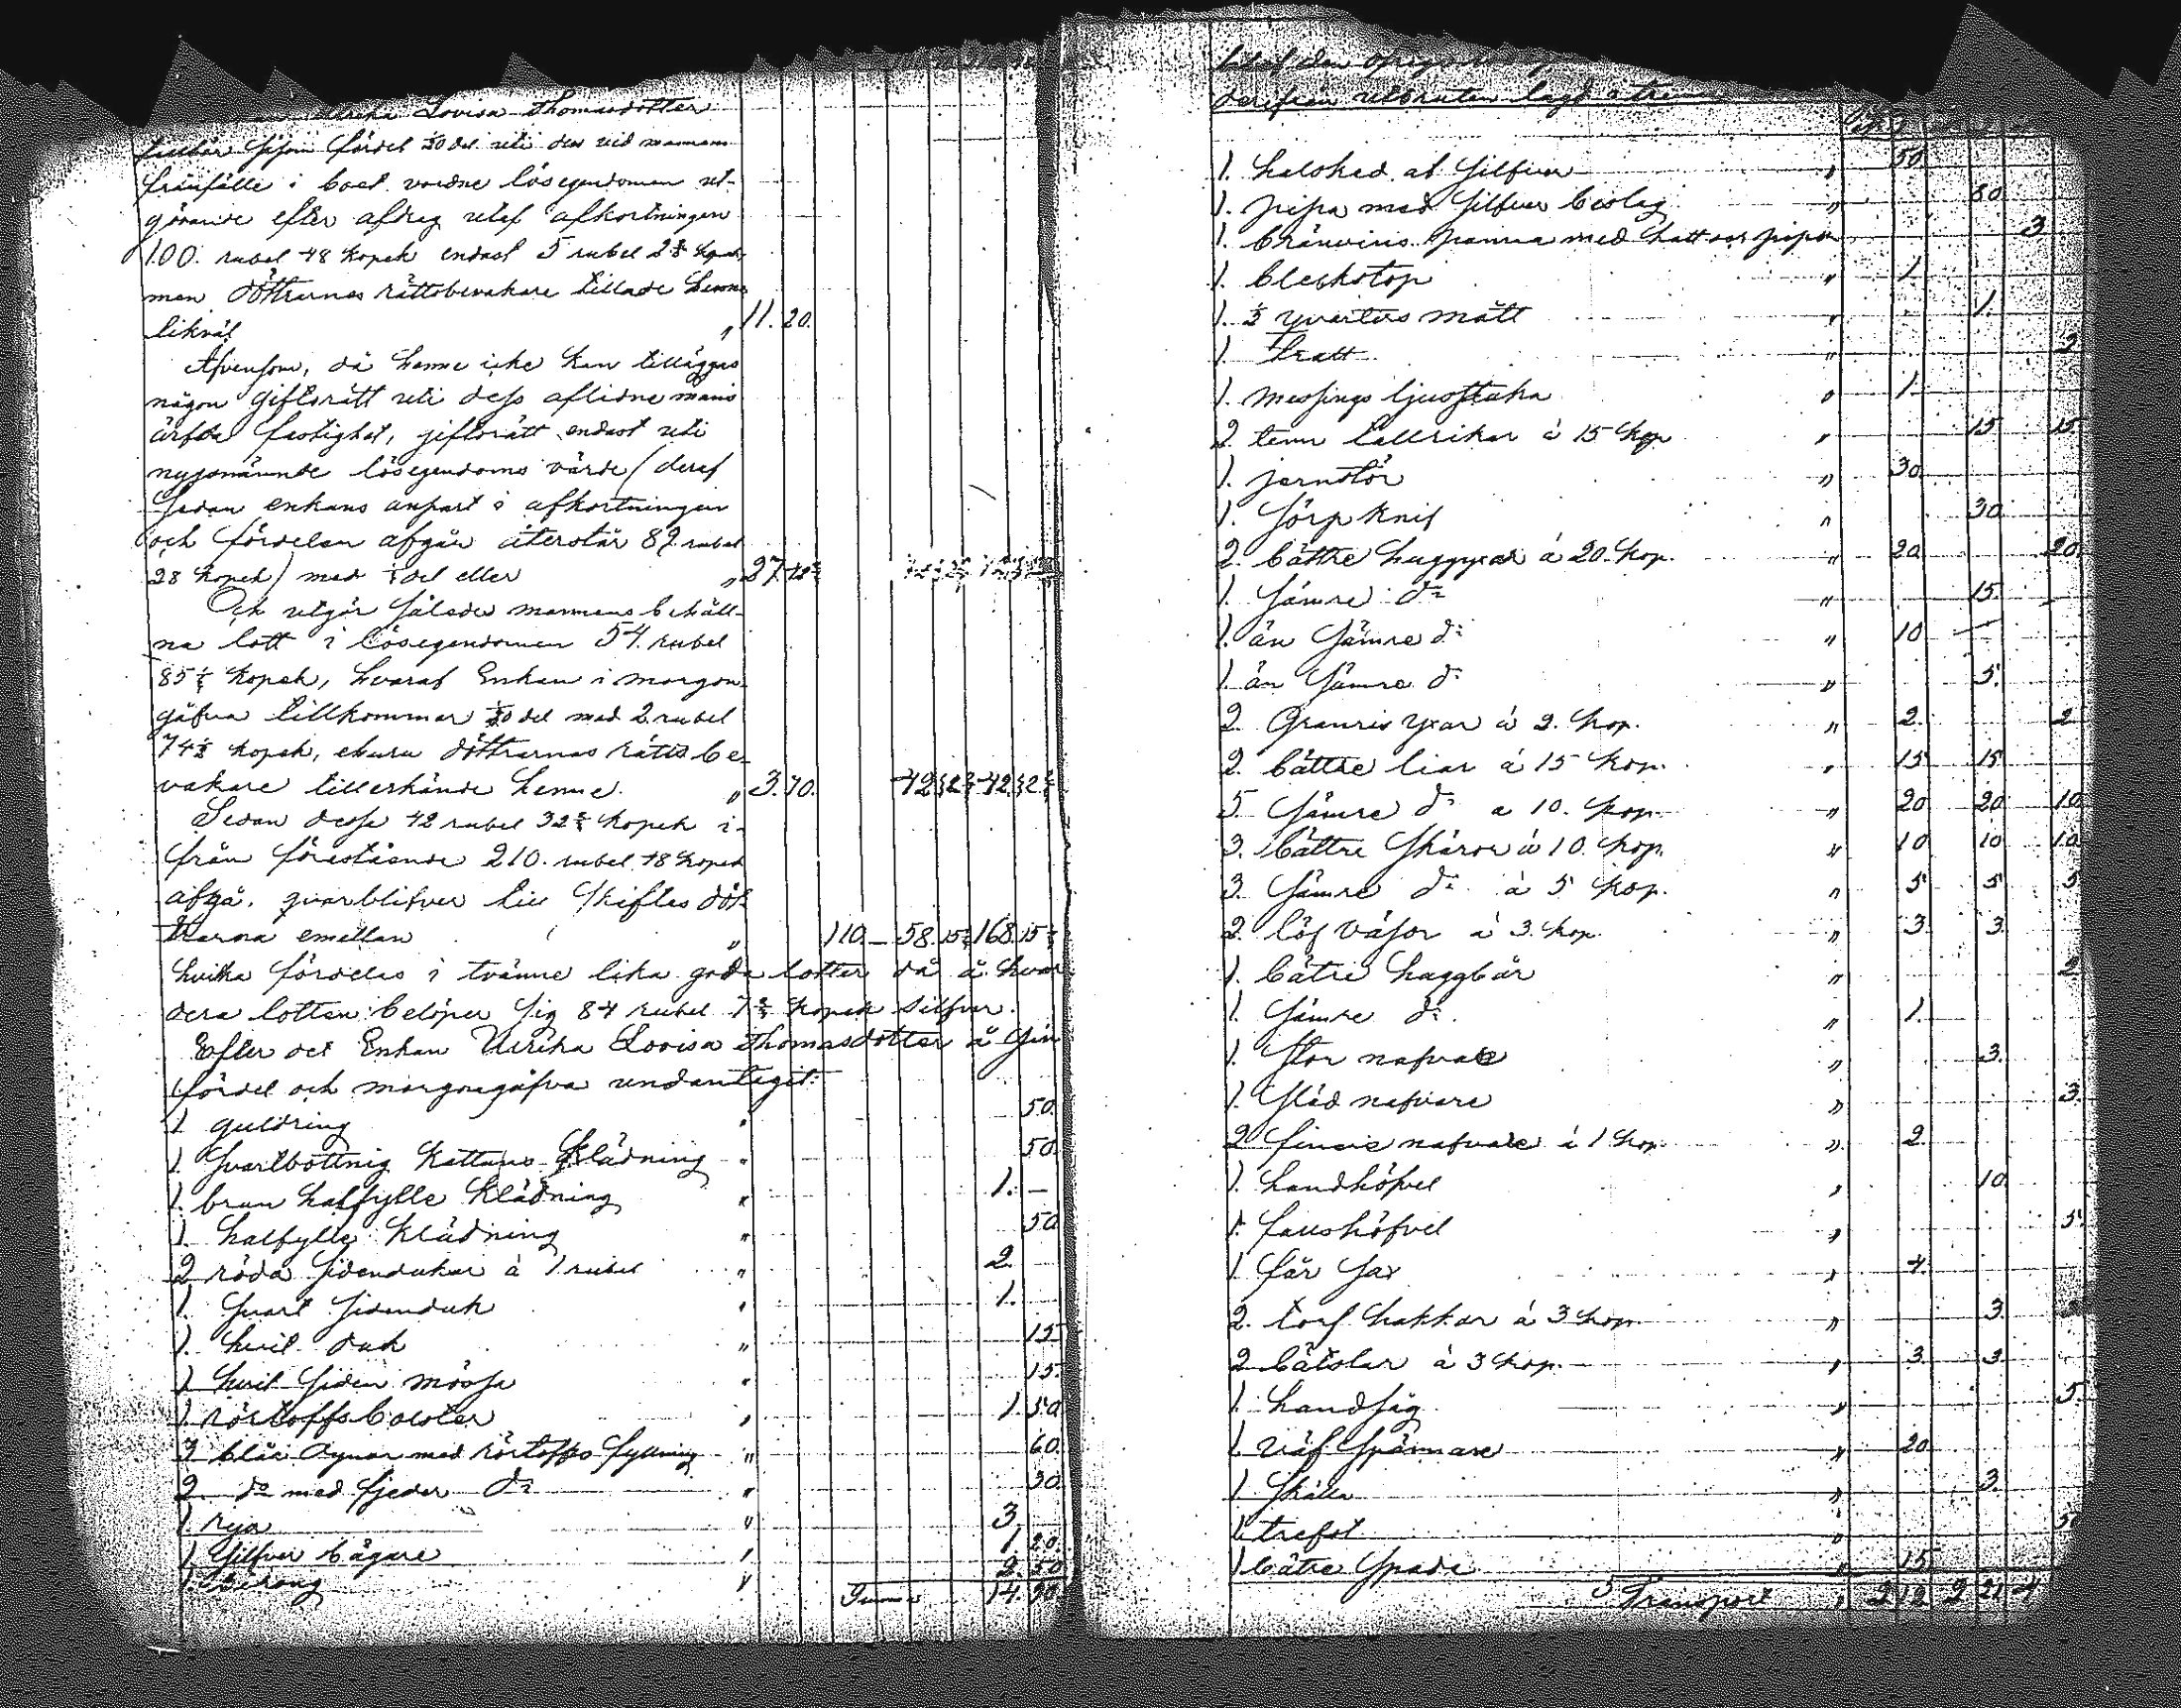 Ulrika Lovisa Thomasdotter
tillbör såsom fördel 1/20 del uti den vid mannens
frånfälle i boet vordne lösegendomen ut-
görande efter afdrag utaf afkortningen
100. rubel 48 kopek endast 5 rubel 2 2/5 kopek
men döttrarnas rättsbevakare tillade henne
likväl " 11. 20.
Äfvensom, då henne icke kan tilläggas
någon giftorätt uti dess aflidne mans
ärfda fastighet, giftorätt endast uti
nyssnämnde lösegendoms värde (deraf
sedan enkans anpart i afkortningen
och fördelen afgår återstår 82 rubel
28 kopek) med 1/3 del eller " 27. 42 2/3
Och utgör således mannens behåll-
na lott i lösegendomen 54. rubel
85 1/3 kopek, hvaraf Enkan i morgon-
gåfva tillkommer 1/20 del med 2 rubel
74 1/4 kopek, ehuru döttrarnas rätts be-
vakare tillerkände henne. " 3. 70. 42 32 2/3 42 32 2/3
Sedan desse 42 rubel 32 2/3 kopek i-
från förestående 210. rubel 48 kopek
afgå, qvarblifver till skiftes döt-
trarna emellan " 110. — 58. 15 1/3 168. 15 1/3
hvilka fördelas i tvänne lika goda lotter då å hvar-
dera lotten belöper sig 84 rubel 7 2/3 kopek silfver.
Efter det Enkan Ulrika Lovisa Thomasdotter å sin
fördel och morgongåfva undantagit:
1 guldring " 50.
1 svartbottnig kattuns klädning " 50.
1. brun halfylle klädning " 1. —
1. halfylle klädning " 50
2 röda sidendukar à 1 rubel " 2. —
1. svart sidenduk " 1.
1. hvit duk " 15
1 hvit siden mössa " 15.
1. rörtoffs bolster " 1. 50
3 blåa dynor med rörtoffs fyllning " 60.
2 do med fjeder do " 30.
1. rya " 3.
1 silfver bägare " 1. 20.
1. " 2. 50
Summa 14. 90
derifrån
1. halsked af silfver " 50.
1. pipa med silfver beslag " 80.
1. bränvins panna med hatt och pipor 3
1. bleckstop " 1.
1. 1/2 qvarters mått " 1.
1 tratt " 2
1. messings ljusstaka " 1.
2 tenn tallrikar à 15 kop " 15 15.
1. jernstör " 30
1. sörp knif " 30.
2. bättre huggyxar à 20. kop. " 20. 20.
1. sämre do " 15.
1. än sämre do " 10
1. än sämre do " 5.
2. Granris yxar à 2. kop. " 2. 2
2. bättre liar à 15 kop. " 15 15
5 sämre do a 10. kop. " 20 20 10
3. bättre skäror à 10. kop. " 10 10 10
3. sämre do à 5 kop. " 5 5 5
2. löf à 3. kop. " 3. 3.
1. bätre huggbår " 2.
1. sämre do. " 1.
1. stor nafvare " 3.
1. släd nafvare " 3.
2 nafvare à 1 kop. " 2.
1. handhöfvel " 10.
1. höfvel " 5.
1 får sax " 4.
2. torf hakkar à 3 kop. " 3. 3
2 à 3 kop. " 3. 3.
1. handsåg " 5.
1. väf spännare " 20
1. skälla " 3.
1. trefot " 50
1 bätre spade " 15
Transport " 2 12 2 21 4